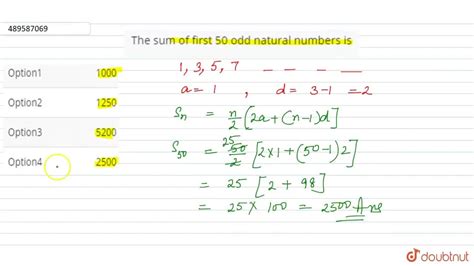 489587069
The sum of first 50 odd natural numbers is
Option1 1000
Option2 1250
Option3 5200
Option4 2500
1, 3, 5, 7 _ _ _ _
a = 1 , d = 3-1 = 2
Sn = n/2 [2a + (n-1)d]
S50 = 25 50/2 [2×1 + (50-1)2]
= 25 [2 + 98]
= 25 × 100 = 2500 Ans
doubtnut